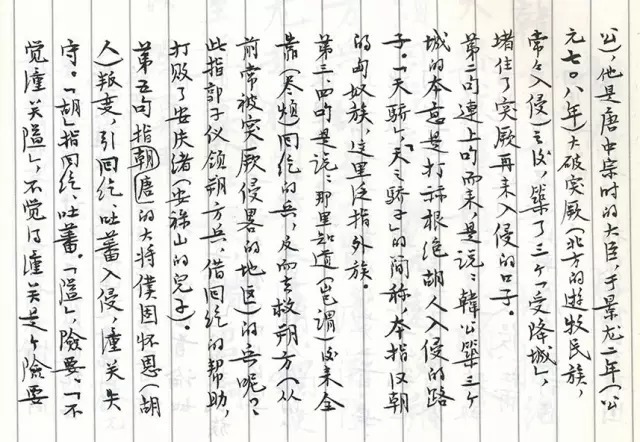 公),他是唐中宗时的大臣,于景龙二年(公
元七〇八年)大破突厥(北方的游牧民族,
常々入侵)之后,築了三个「受降城」,
堵住了突厥再来入侵的口子。
第二句連上句而来,是说:韓公築三个
城的本意是打祘根绝胡人入侵的路
子。「天骄」,「天之骄子」的简称,本指汉朝
的匈奴族,这里泛指外族。
第三、四句是说:那里知道(岂谓)后来全
靠(尽烦)回纥的兵,反而去救朔方(从
前常被突厥侵畧的地区)的兵呢?
此指郭子仪领朔方兵,借回纥的帮助,
打败了安庆绪(安禄山的兒子)。
第五句指朝唐的大将僕固怀恩(胡
人)叛变,引回纥、吐蕃入侵,潼关失
守。「胡」指回纥、吐蕃。「隘」,险要。「不
觉潼关隘」,不觉得潼关是个险要